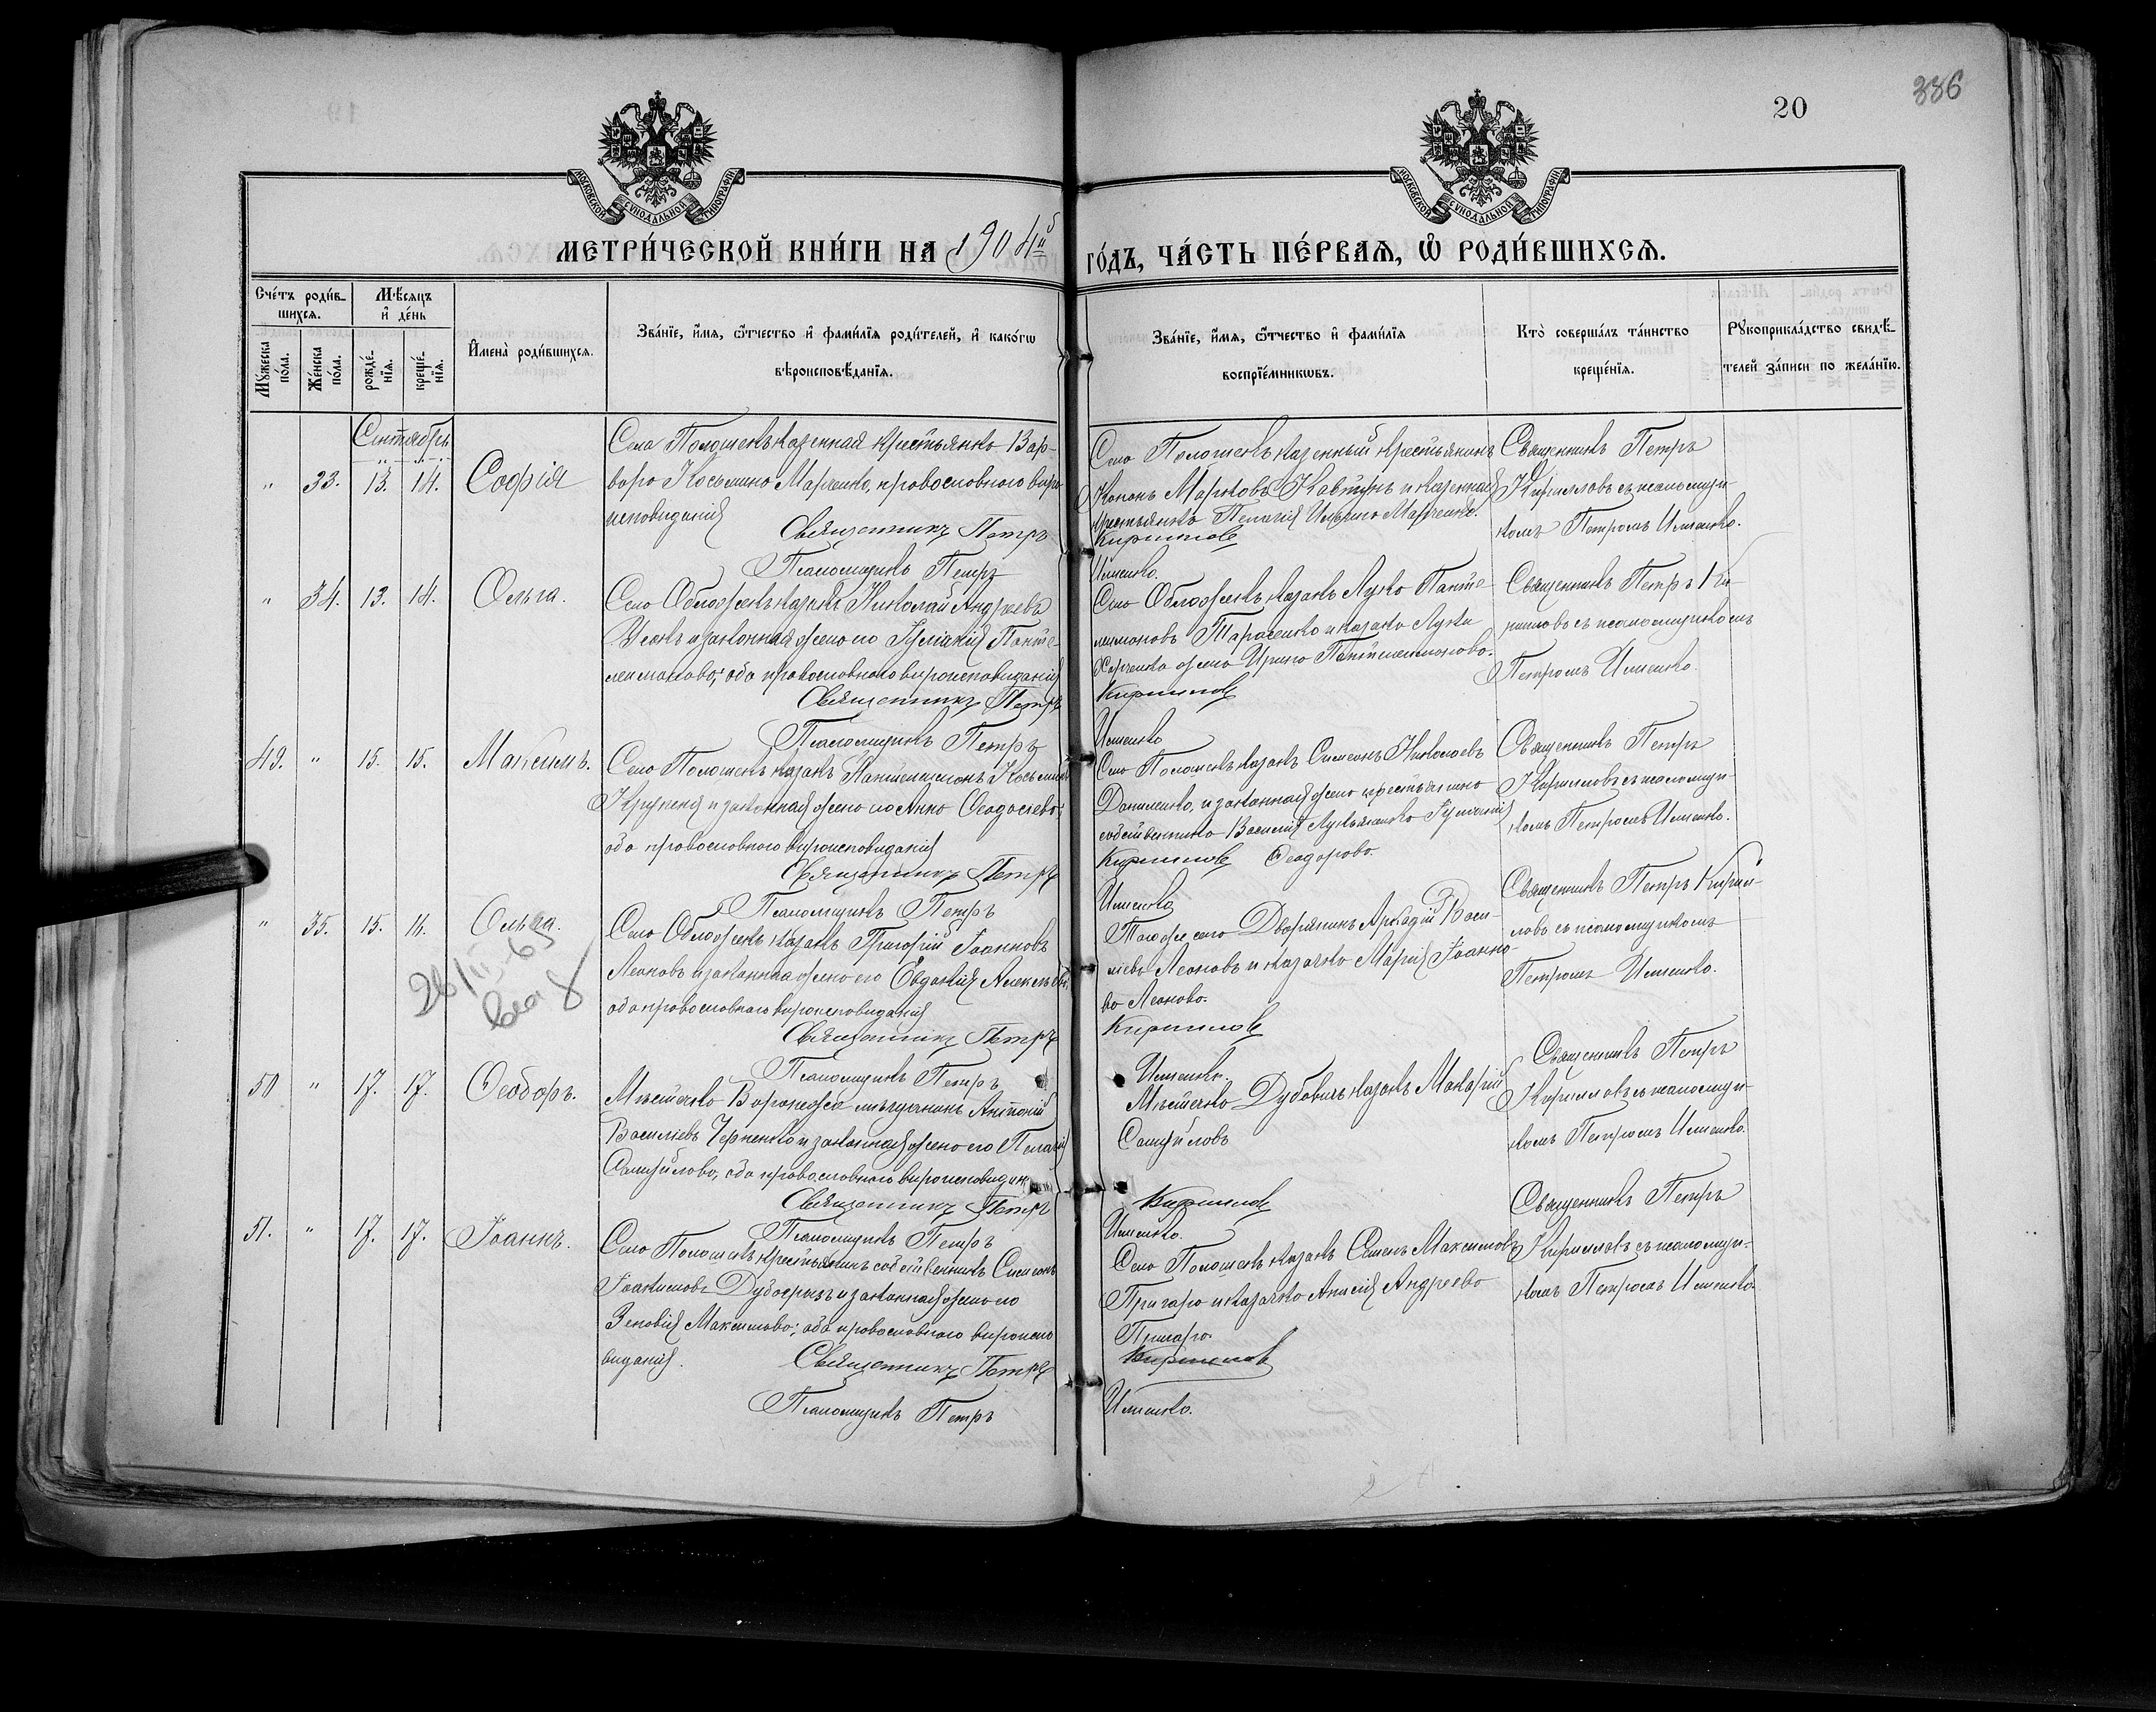 20
336
МОСКОВСКОЙ СѴНОДАЛЬНОЙ ТИПОГРАФІИ
МОСКОВСКОЙ СѴНОДАЛЬНОЙ ТИПОГРАФІИ
МЕТРИ́ЧЕСКОЙ КНИ́ГИ НА 1904й
ГО́ДЪ, ЧА́СТЬ ПЕ́РВАѦ, Ѡ҆ РОДИ́ВШИХСѦ.
Сче́тъ роди́в-
шихсѧ.
Мѣ́сѧцъ
и҆ де́нь
Мꙋ́жеска по́ла.
Же́нска по́ла.
рожде́-нїѧ.
креще́-нїѧ.
И҆мена̀ роди́вшихсѧ.
Зва́нїе, и҆́мѧ, ѻ҆́тчество и҆ фами́лїѧ роди́телей, и҆ како́гѡ
вѣроисповѣ́данїѧ.
Зва́нїе, и҆́мѧ, ѻ҆́тчество и҆ фами́лїѧ
воспрїе́мникѡвъ.
Кто̀ соверша́лъ та́инство
креще́нїѧ.
Рꙋкоприкла́дство свидѣ́-
телей за́писи по жела́нїю.
Сентябрь
" 33. 13. 14. Софія
Села Полошекъ казенная крестьянка Вар-
вара Косьмина Марченко, православнаго вѣро
исповѣданія
Священникъ Петръ
Псаломщикъ Петръ
Села Полошекъ казенный крестьянинъ
Кононъ Марковъ Кавтунъ и казенная
крестьянка Пелагія Ильина Марченко.
Кирилловъ
Ильченко.
Священникъ Петръ
Кирилловъ съ псаломщи-
комъ Петромъ Ильченко.
" 34. 13. 14. Ольга.
Села Обложекъ казакъ Николай Андреевъ
и законная жена его Гликерія Панте-
леимонова; оба православнаго вѣроисповѣданія
Священникъ Петръ
Псаломщикъ Петръ
Села Обложекъ казакъ Лука Панте-
леимоновъ Тарасенко и казака Луки
Харченка жена Ирина Пантелеимонова.
Кирилловъ
Ильченко
Священникъ Петръ Ки-
рилловъ съ псаломщикомъ
Петромъ Ильченко.
49. " 15. 15. Максимъ.
Села Полошекъ казакъ Пантелеимонъ Косьминъ
Крупеня и законная жена его Анна Феодосіева;
оба православнаго вѣроисповѣданія
Священникъ Петръ
Псаломщикъ Петръ
Села Полошекъ казакъ Симеонъ Николаевъ
Даниленко, и законная жена крестьянина
собственника Василія Лукьяненко Гликерія
Кирилловъ Феодорова.
Ильченко
Священникъ Петръ
Кирилловъ съ псаломщи-
комъ Петромъ Ильченко.
" 35. 15. 16. Ольга.
26/II-65
Села Обложекъ казакъ Григорій Іоанновъ
Леоновъ и законная жена его Евдокія Алексѣева;
оба православнаго вѣроисповѣданія
Священникъ Петръ
Псаломщикъ Петръ
Того же села Дворянинъ Аркадій Васи-
ліевъ Леоновъ и казачка Марія Іоанно-
ва Леонова.
Кирилловъ
Ильченко.
Священникъ Петръ Кирил-
ловъ съ псаломщикомъ
Петромъ Ильченко.
50 " 17. 17. Феодоръ.
Мѣстечка Воронежа мѣщанинъ Антоній
Василіевъ Черненко и законная жена его Пелагія
Самуйлова, оба православнаго вѣроисповѣдан.
Священникъ Петръ
Псаломщикъ Петръ
Мѣстечка Дубовичъ казакъ Макарій
Самуйловъ
Кирилловъ
Ильченко.
Священникъ Петръ
Кирилловъ съ псаломщи-
комъ Петромъ Ильченко.
51. " 17. 17. Іоаннъ.
Села Полошекъ крестьянинъ собственникъ Симеонъ
Іоакимовъ и законная жена его
Зеновія Максимова; оба православнаго вѣроиспо
вѣданія.
Священникъ Петръ
Псаломщикъ Петръ
Села Полошекъ казакъ Семенъ Максимовъ
Пригара и казачка Анисія Андреева
Пригара.
Кирилловъ
Ильченко.
Священникъ Петръ
Кирилловъ съ псаломщи-
комъ Петромъ Ильченко.